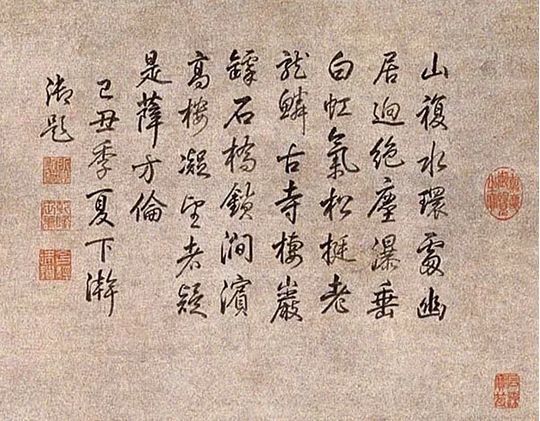 山複水環處幽
居迥絶塵瀑垂
白虹氣松挺老
龍鱗古寺棲巖
罅石橋鎖澗濱
高樓凝望者疑
是薛方倫
己丑季夏下澣
御題